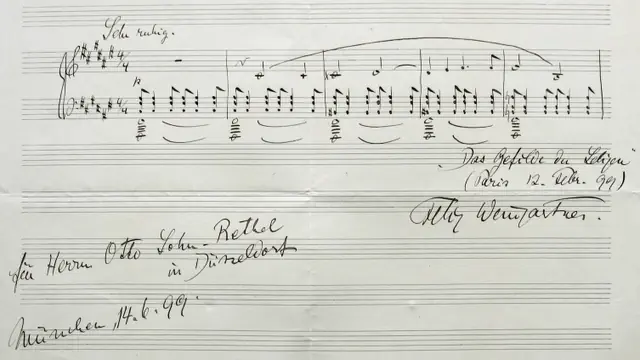 Sehr ruhig.
4/4
p
4/4
"Das Gefilde der Seligen"
(Paris 12. Febr. 99)
Felix Weingartner.
Für Herrn Otto Sohn-Rethel
in Düsseldorf
München, 14.6.99.